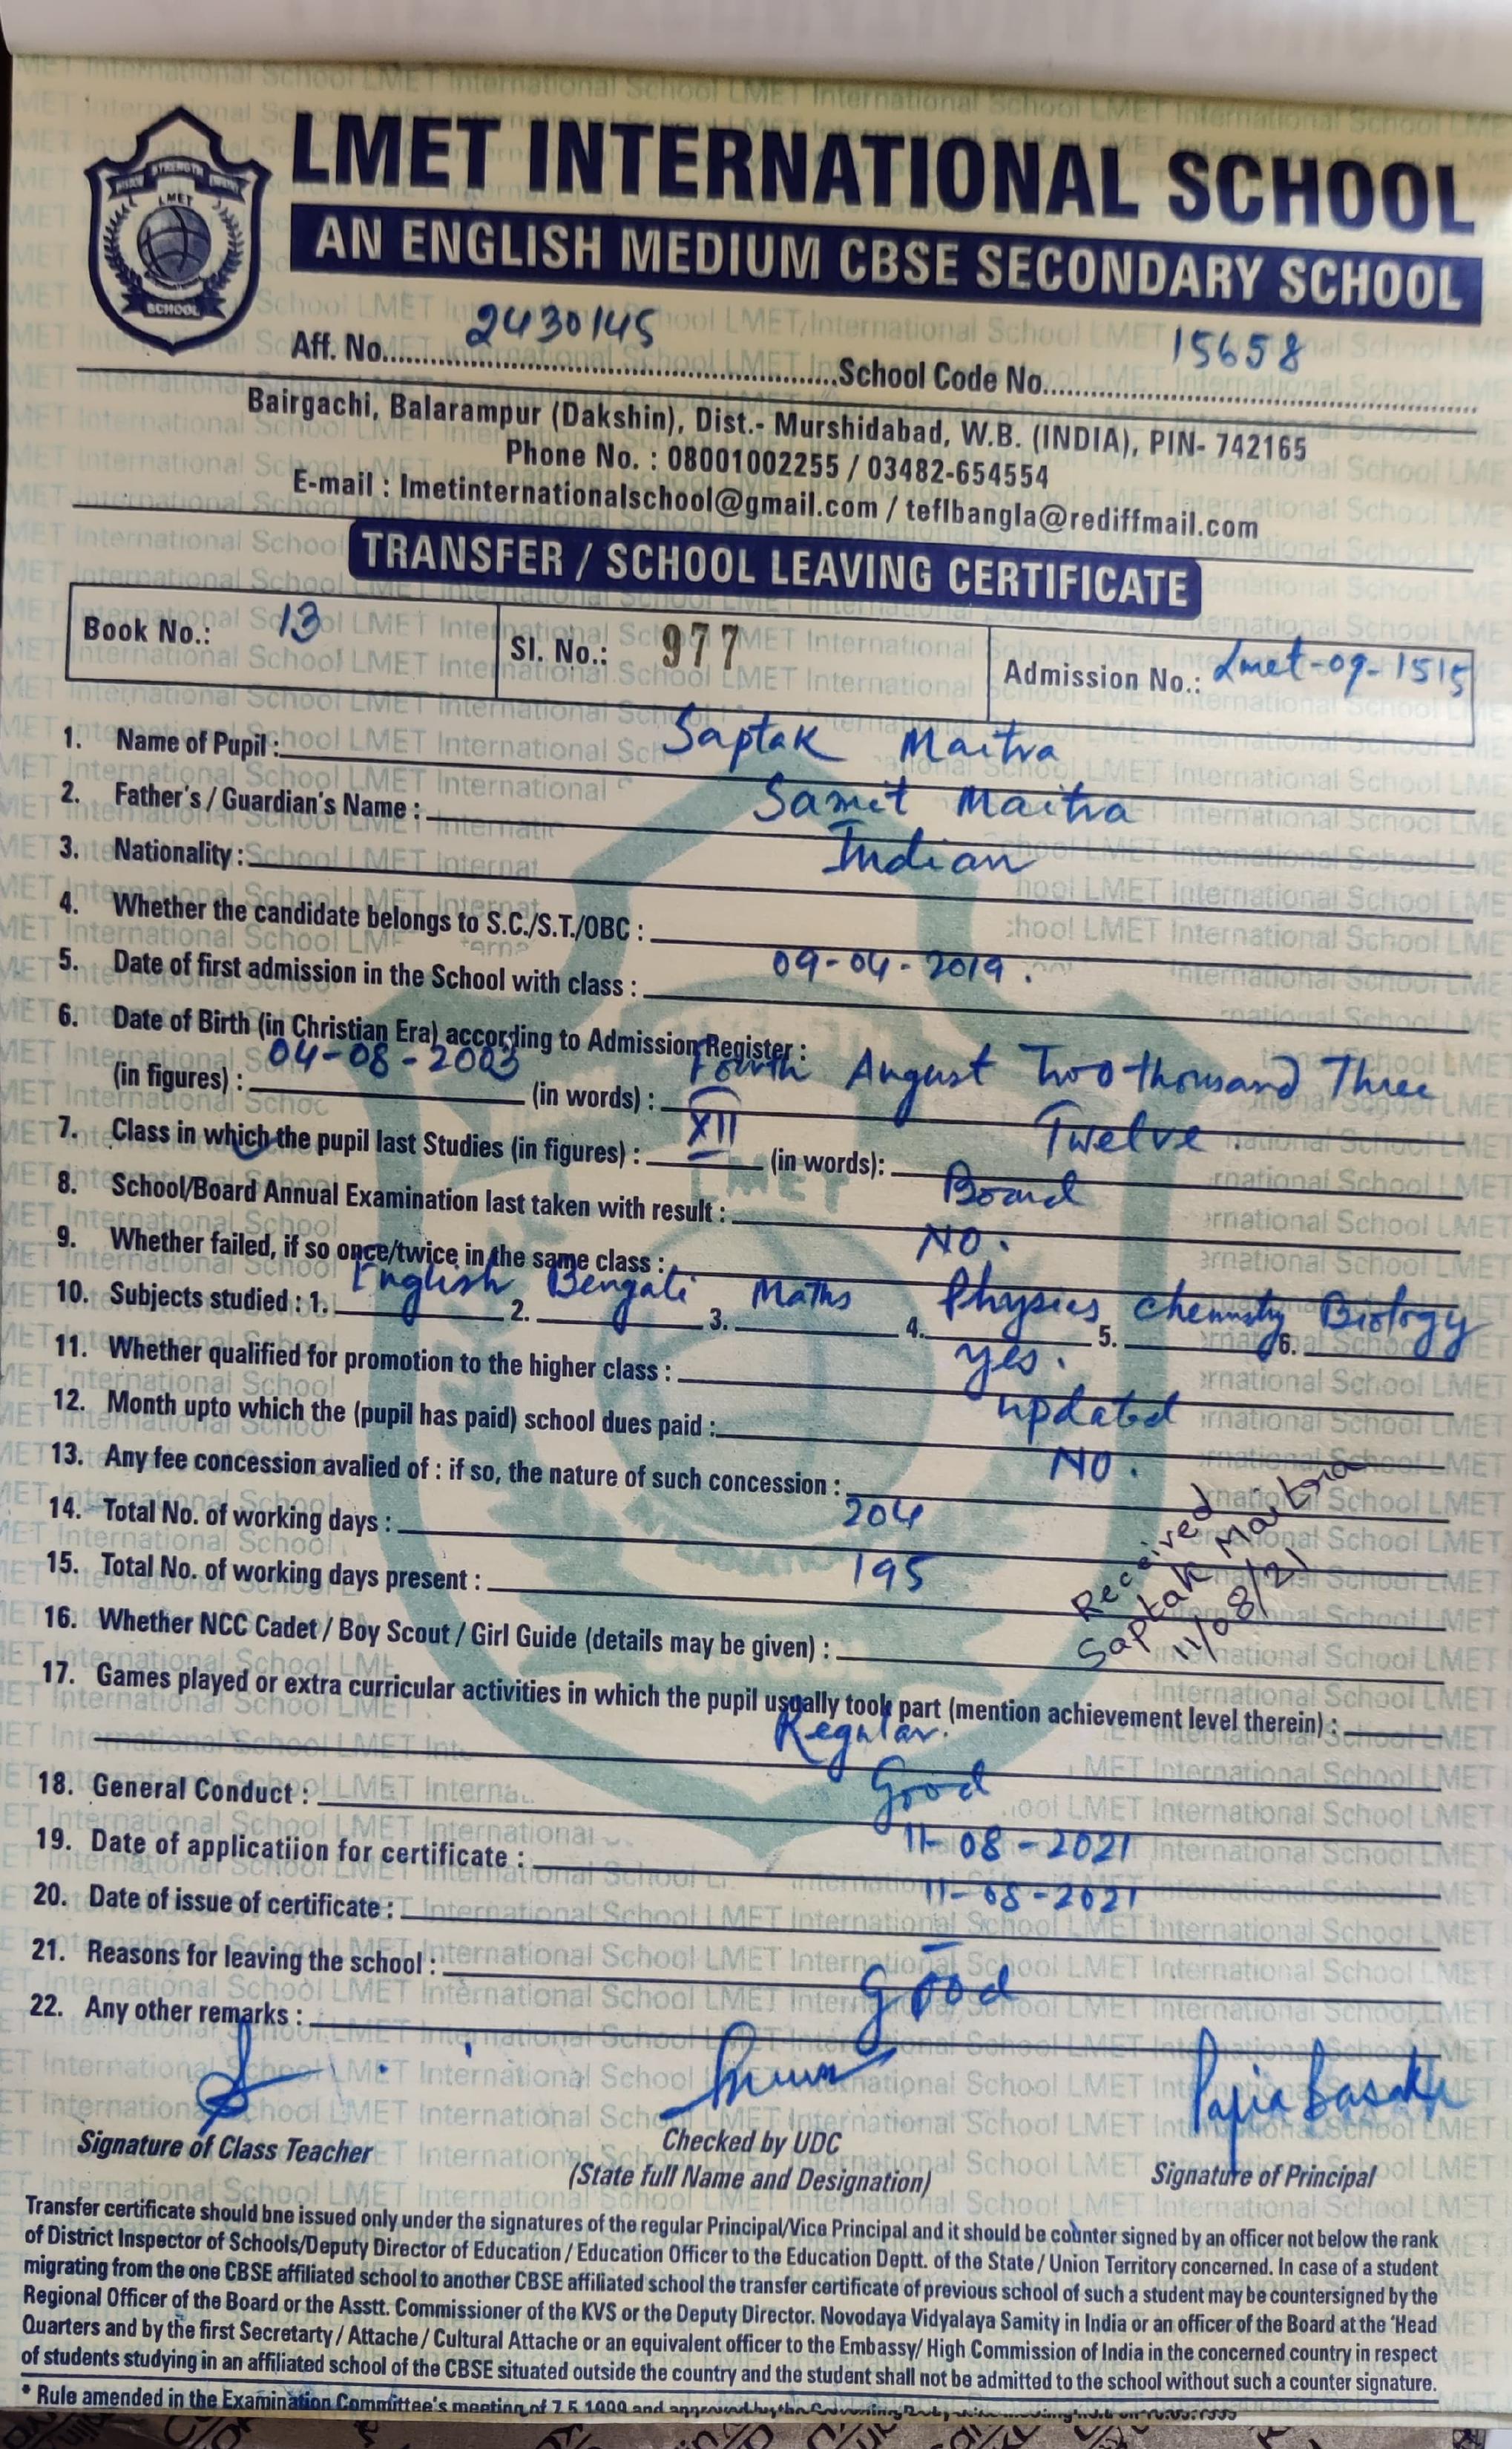 LMET INTERNATIONAL SCHOOL
AN ENGLISH MEDIUM CBSE SECONDARY SCHOOL
LMET
SCHOOL
Aff. No. 2430145 School Code No. 15658
Bairgachi, Balarampur (Dakshin), Dist.- Murshidabad, W.B. (INDIA), PIN- 742165
Phone No. : 08001002255 / 03482-654554
E-mail : lmetinternationalschool@gmail.com / teflbangla@rediffmail.com
TRANSFER / SCHOOL LEAVING CERTIFICATE
Book No.: 13 Sl. No.: 977 Admission No.: Lmet-09-1515
1. Name of Pupil : Saptak Maitra
2. Father's / Guardian's Name : Samit Maitra
3. Nationality : Indian
4. Whether the candidate belongs to S.C./S.T./OBC :
5. Date of first admission in the School with class : 09-04-2019.
6. Date of Birth (in Christian Era) according to Admission Register :
(in figures) : 04-08-2003 (in words) : Fourth August Two thousand Three
7. Class in which the pupil last Studies (in figures) : XII (in words): Twelve.
8. School/Board Annual Examination last taken with result : Board
9. Whether failed, if so once/twice in the same class : NO.
10. Subjects studied : 1. English 2. Bengali 3. Maths 4. Physics 5. Chemistry 6. Biology
11. Whether qualified for promotion to the higher class : yes.
12. Month upto which the (pupil has paid) school dues paid : updated
13. Any fee concession avalied of : if so, the nature of such concession : NO.
14. Total No. of working days : 204
15. Total No. of working days present : 195
Received
Saptak Maitra
11/08/21
16. Whether NCC Cadet / Boy Scout / Girl Guide (details may be given) :
17. Games played or extra curricular activities in which the pupil usually took part (mention achievement level therein) :
Regular.
18. General Conduct : Good
19. Date of applicatiion for certificate : 11-08-2021
20. Date of issue of certificate : 11-08-2021
21. Reasons for leaving the school : —
22. Any other remarks : Good
Papia Basak
Signature of Class Teacher Checked by UDC Signature of Principal
(State full Name and Designation)
Transfer certificate should bne issued only under the signatures of the regular Principal/Vice Principal and it should be counter signed by an officer not below the rank
of District Inspector of Schools/Deputy Director of Education / Education Officer to the Education Deptt. of the State / Union Territory concerned. In case of a student
migrating from the one CBSE affiliated school to another CBSE affiliated school the transfer certificate of previous school of such a student may be countersigned by the
Regional Officer of the Board or the Asstt. Commissioner of the KVS or the Deputy Director. Novodaya Vidyalaya Samity in India or an officer of the Board at the 'Head
Quarters and by the first Secretarty / Attache / Cultural Attache or an equivalent officer to the Embassy/ High Commission of India in the concerned country in respect
of students studying in an affiliated school of the CBSE situated outside the country and the student shall not be admitted to the school without such a counter signature.
* Rule amended in the Examination Committee's meeting of 7.5.1999 and approved by the